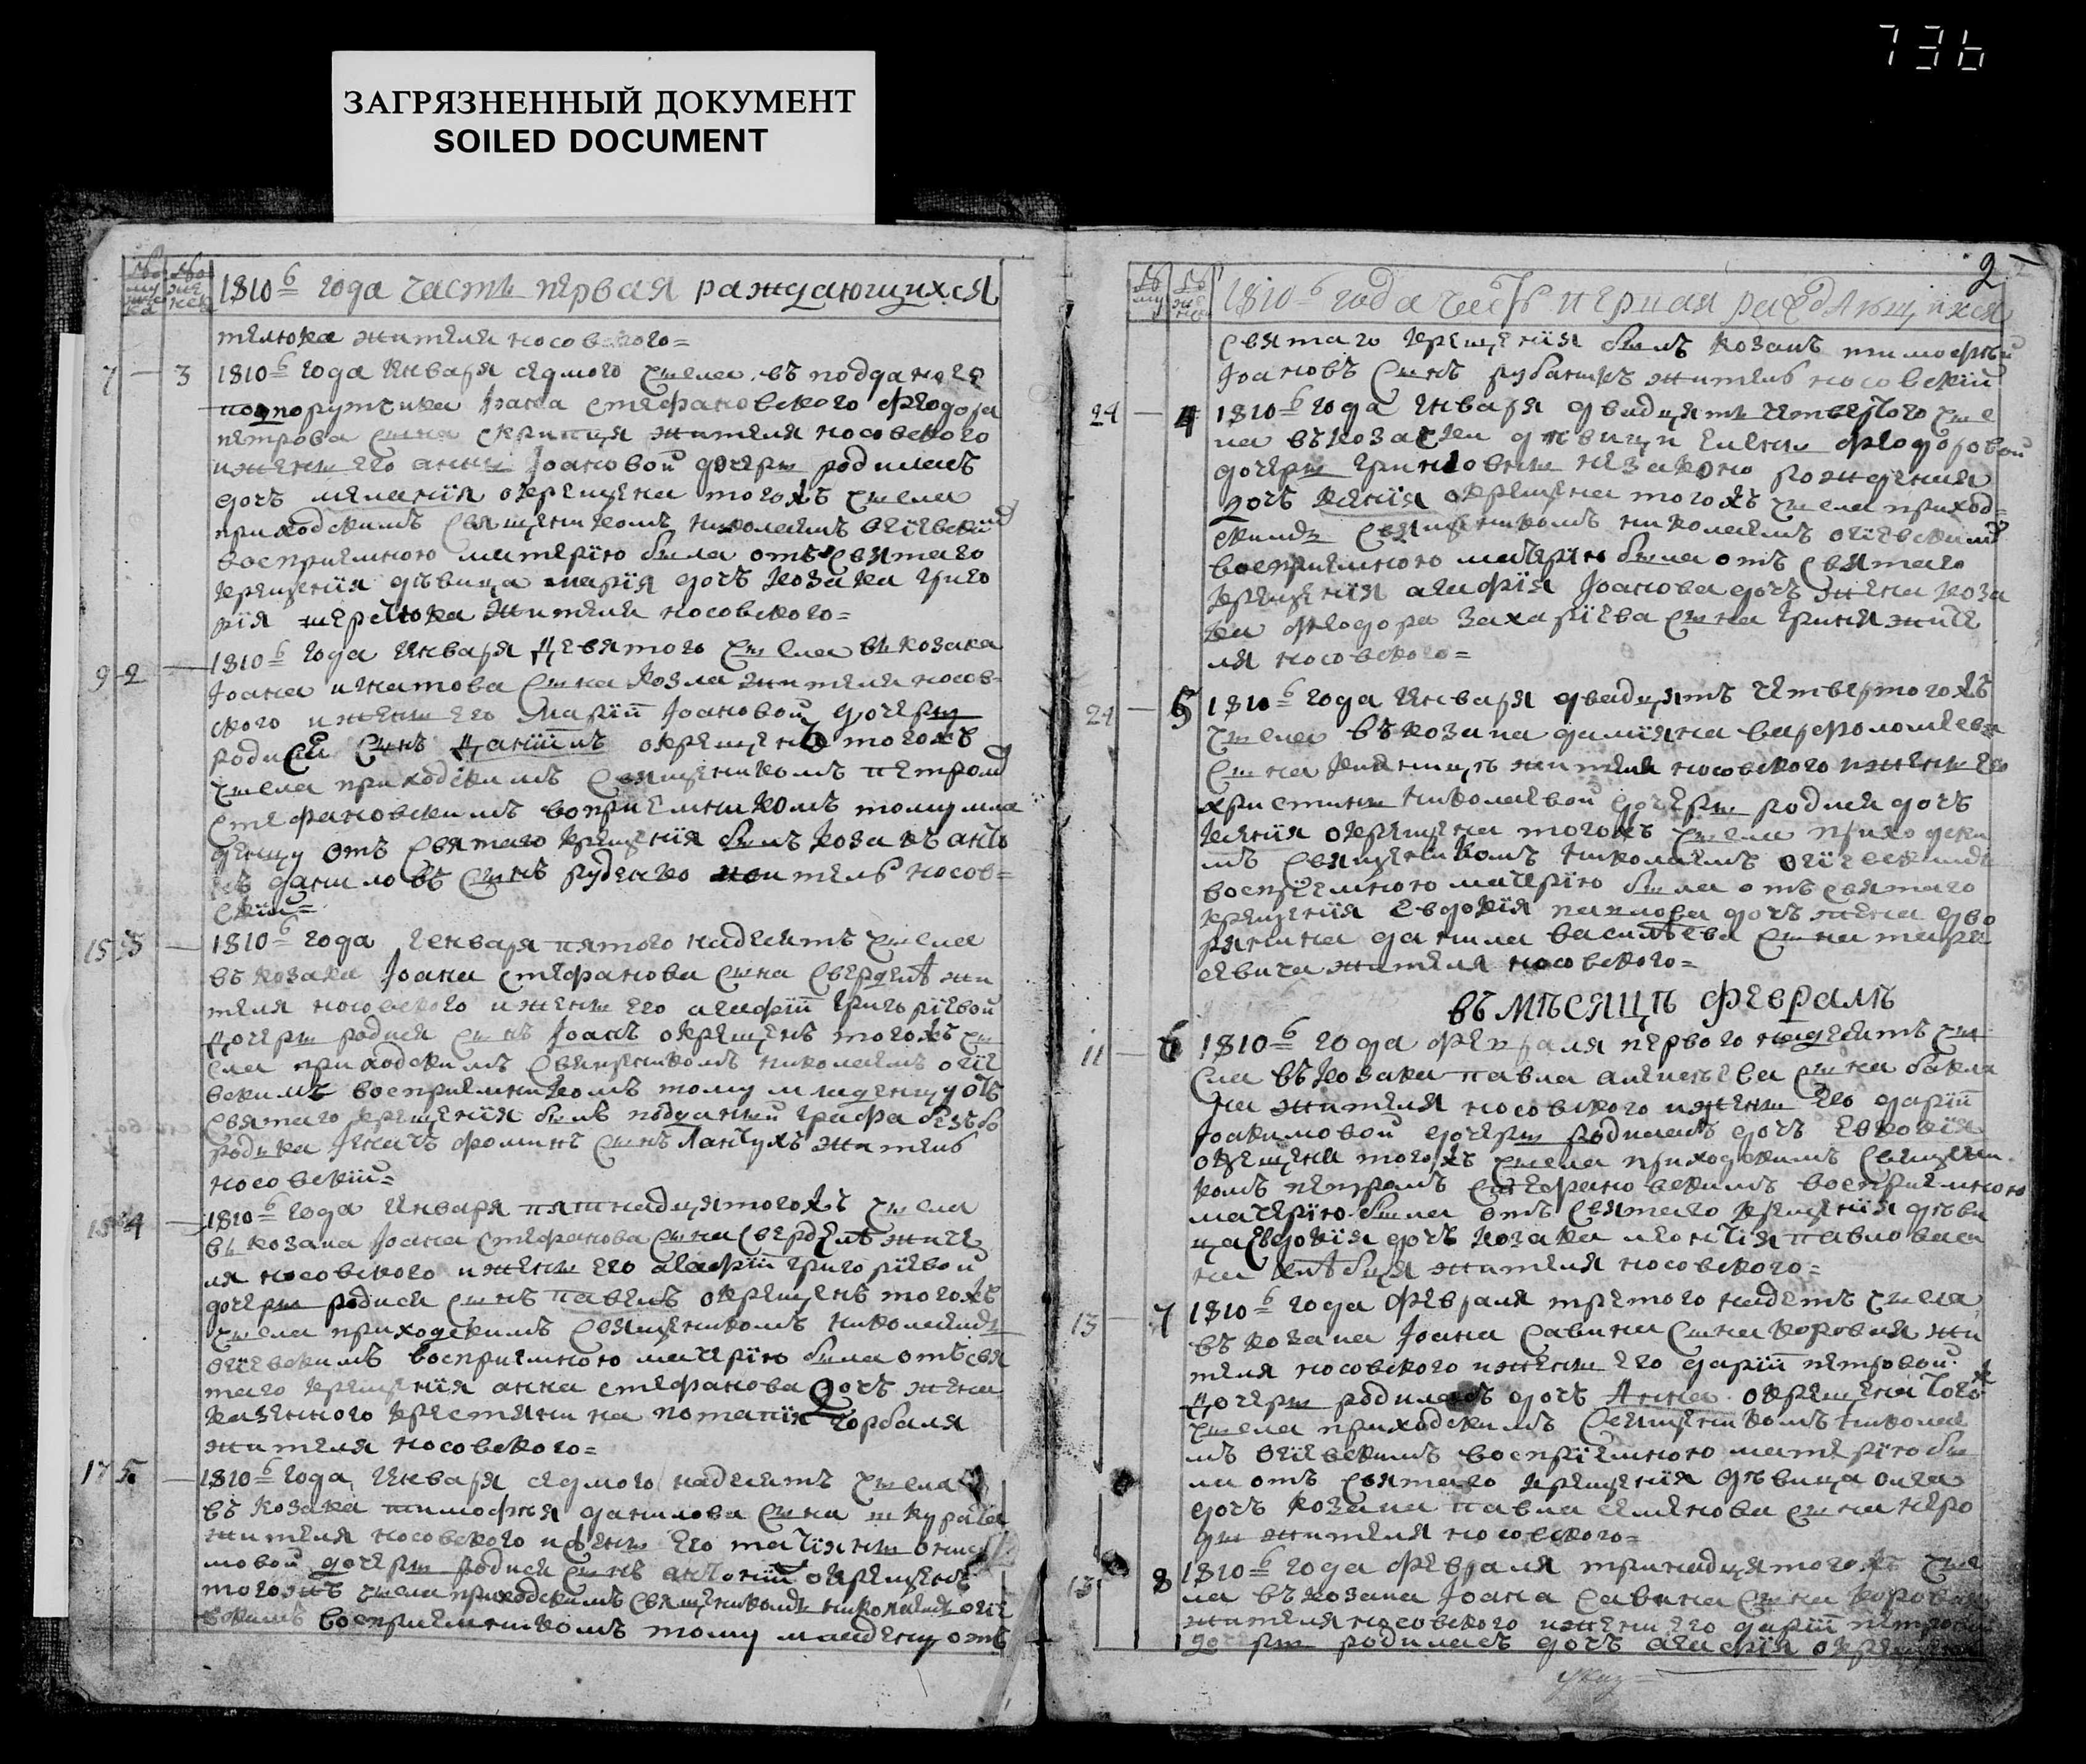 736
ЗАГРЯЗНЕННЫЙ ДОКУМЕНТ
SOILED DOCUMENT
1810го года часть первая раждающихся
жителя носовского=
7 — 3 1810го года января седмого числа въ подданого
порутчика Стефановского Феодора
петрова сына жителя носовского
и жены его анны Іоановой дочеры родилась
дочъ меланія окрещена тогожъ числа
приходскимъ священикомъ николаемъ
восприемною матерію была отъ святаго
крещенія девица марія дочъ козака григо
рія жителя носовского=
9 2 — 1810го года января девятого числа въ козака
Іоана игнатова сына козла жителя носов
ского и жены его маріи Іоановой дочеры
родися сынъ даніилъ окрещенъ тогожъ
числа приходскимъ священикомъ петромъ
Стефановскимъ восприемникомъ тому мла
денцу отъ святаго крещенія былъ козакъ
даниловъ сынъ руденко житель носов=
скій=
15 3 — 1810го года генваря пятого надцать числа
въ козака Іоана стефанова сына жи
теля носовского и жены его агафіи григоріевой
дочеры родися сынъ Іоанъ окрещенъ тогожъ чи
сла приходскимъ священикомъ николаемъ
восприемникомъ тому младенцу отъ
святаго крещенія былъ подданный графа безбо
родка фоминъ сынъ житель
носовскій=
15 4 — 1810го года января пятнадцятогожъ числа
въ козака Іоана стефанова сына жите
ля носовского и жены его агафіи григоріевой
дочеры родися сынъ павелъ окрещенъ тогожъ
числа приходскимъ священикомъ николаемъ
восприемною матерію была отъ свя
таго крещенія анна стефанова дочъ жена
казенного крестянина потапія горбаля
жителя носовского=
17 5 — 1810го года января седмого надцать числа
въ козака тимофея данилова сына
жителя носовского и жены его татіяны
дочеры родися сынъ антоній окрещенъ
тогожъ числа приходскимъ священикомъ николаемъ
восприемникомъ тому младенцу отъ
2
1810го года часть первая раждающихся
святаго крещенія былъ козакъ тимофей
Іоановъ сынъ житель носовскій
24 — 4 1810го года января двадцять четвертого чис
ла въ козачки девици елены феодоровой
дочеры незаконо рожденная
дочъ ксенія окрещена тогожъ числа приход=
скимъ священикомъ николаемъ
восприемною матерію была отъ святаго
крещенія агафія Іоанова дочъ жена коза
ка феодора захаріева сына жите
ля носовского=
24 — 5 1810го года января двадцять четвертогожъ
числа въ козака даміяна варфоломеева
сына жителя носовского и жены его
христины николаевой дочеры родися дочъ
ксенія окрещена тогожъ числа приходски
мъ священикомъ николаемъ
восприемною матерію была отъ святаго
крещенія евдокія павлова дочъ жена дво
рянина данила василіева сына
жителя носовского=
въ месяце февралъ
11 — 6 1810го года февраля первого надцать чи
сла въ козака павла алексеева сына
жителя носовского и жены его даріи
Іоакимовой дочеры родилась дочъ евдокія
окрещена тогожъ числа приходскимъ священи
комъ петромъ стефановскимъ восприемною
матерію была отъ святаго крещенія деви
ца евдокія дочъ козака леонтія павлова сы
на жителя носовского=
13 — 7 1810го года февраля третого надцать числа
въ козака Іоана савина сына коровая жи
теля носовского и жены его даріи петровой
дочеры родилась дочъ Анна окрещена тогожъ
числа приходскимъ священикомъ николае
мъ восприемною матерію бы
ла отъ святаго крещенія девица
дочъ козака павла семенова сына
жителя носовского=
13 8 1810го года февраля тринадцятогожъ чис
ла въ козака Іоана савина сына коровая
жителя носовского и жены его даріи петровой
дочеры родилась дочъ агафія окрещена